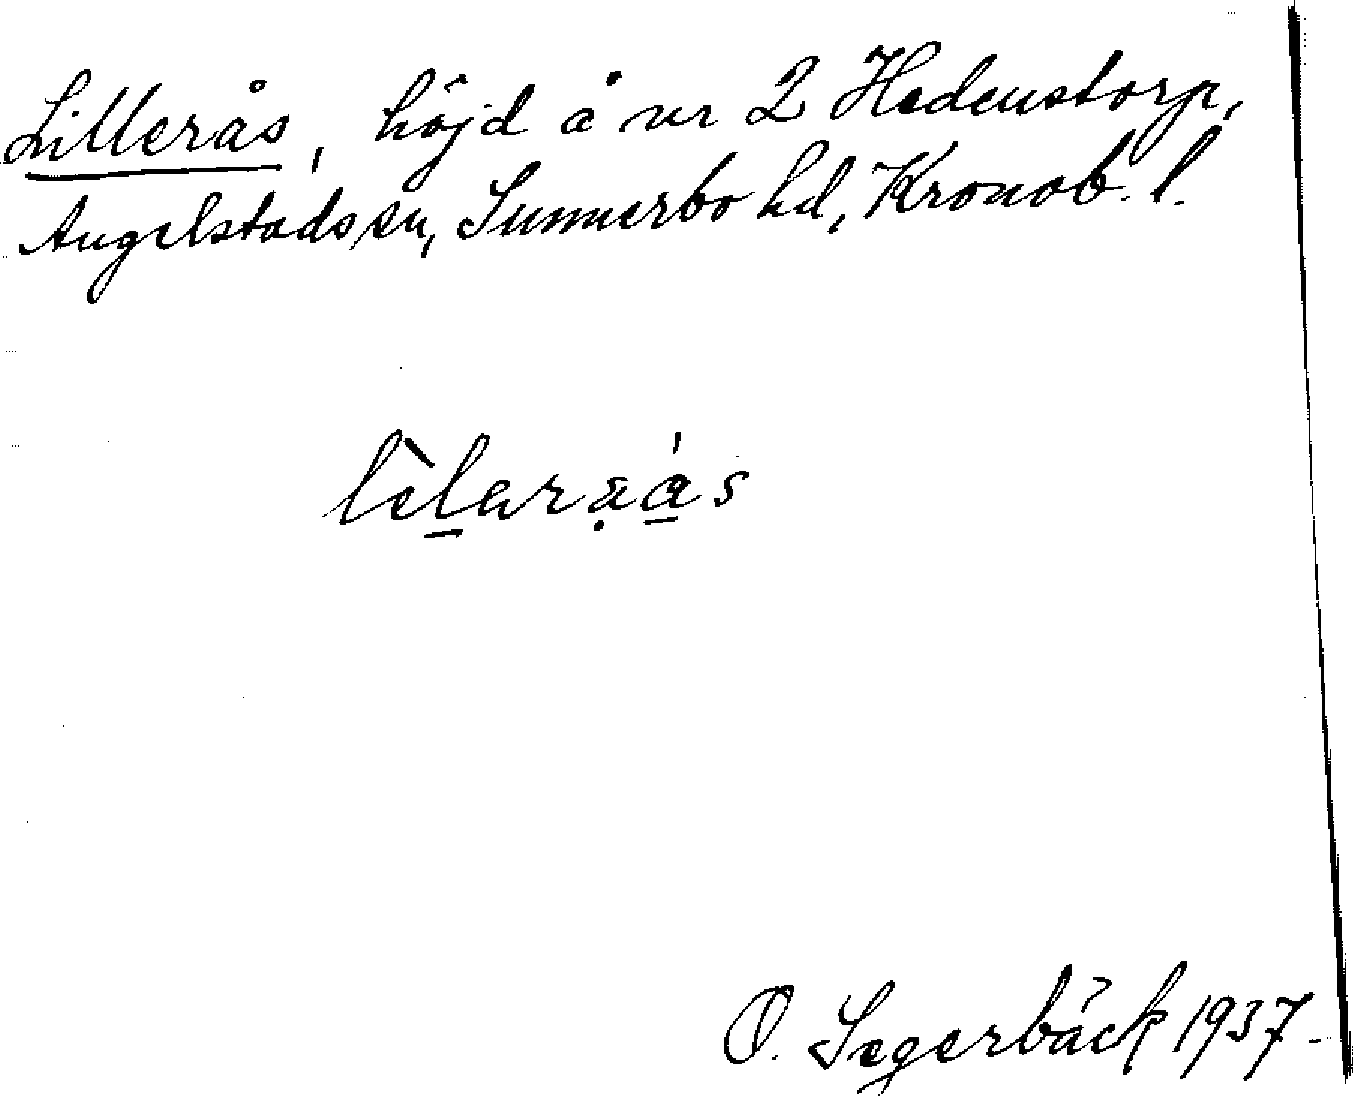 Lillerås, höjd å nr 2 Hedenstorp,
Angelstads sn, Sunnerbo hd, Kronob. l.
O. Segerbäck 1937